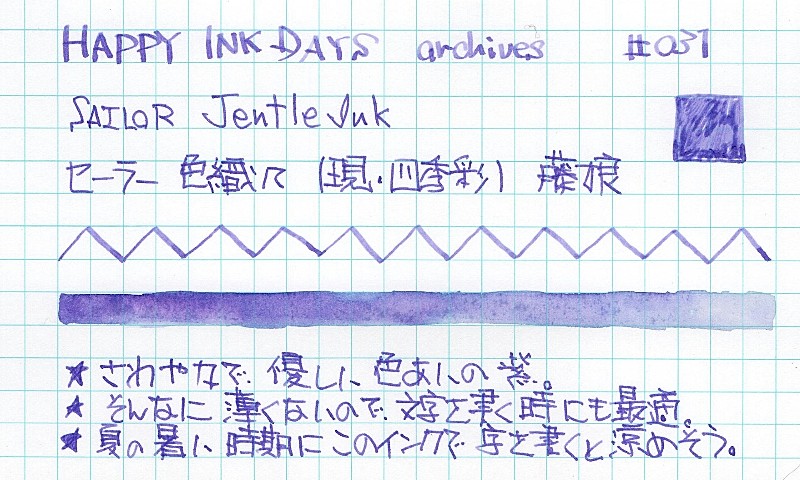 HAPPY INK DAYS archives #031
SAILOR Jentle Ink
セーラー 色織々 (現・四季彩) 藤娘
★さわやかで優しい色あいの紫。
★そんなに薄くないので文字を書く時にも最適。
★夏の暑い時期にこのインクで字を書くと涼めそう。